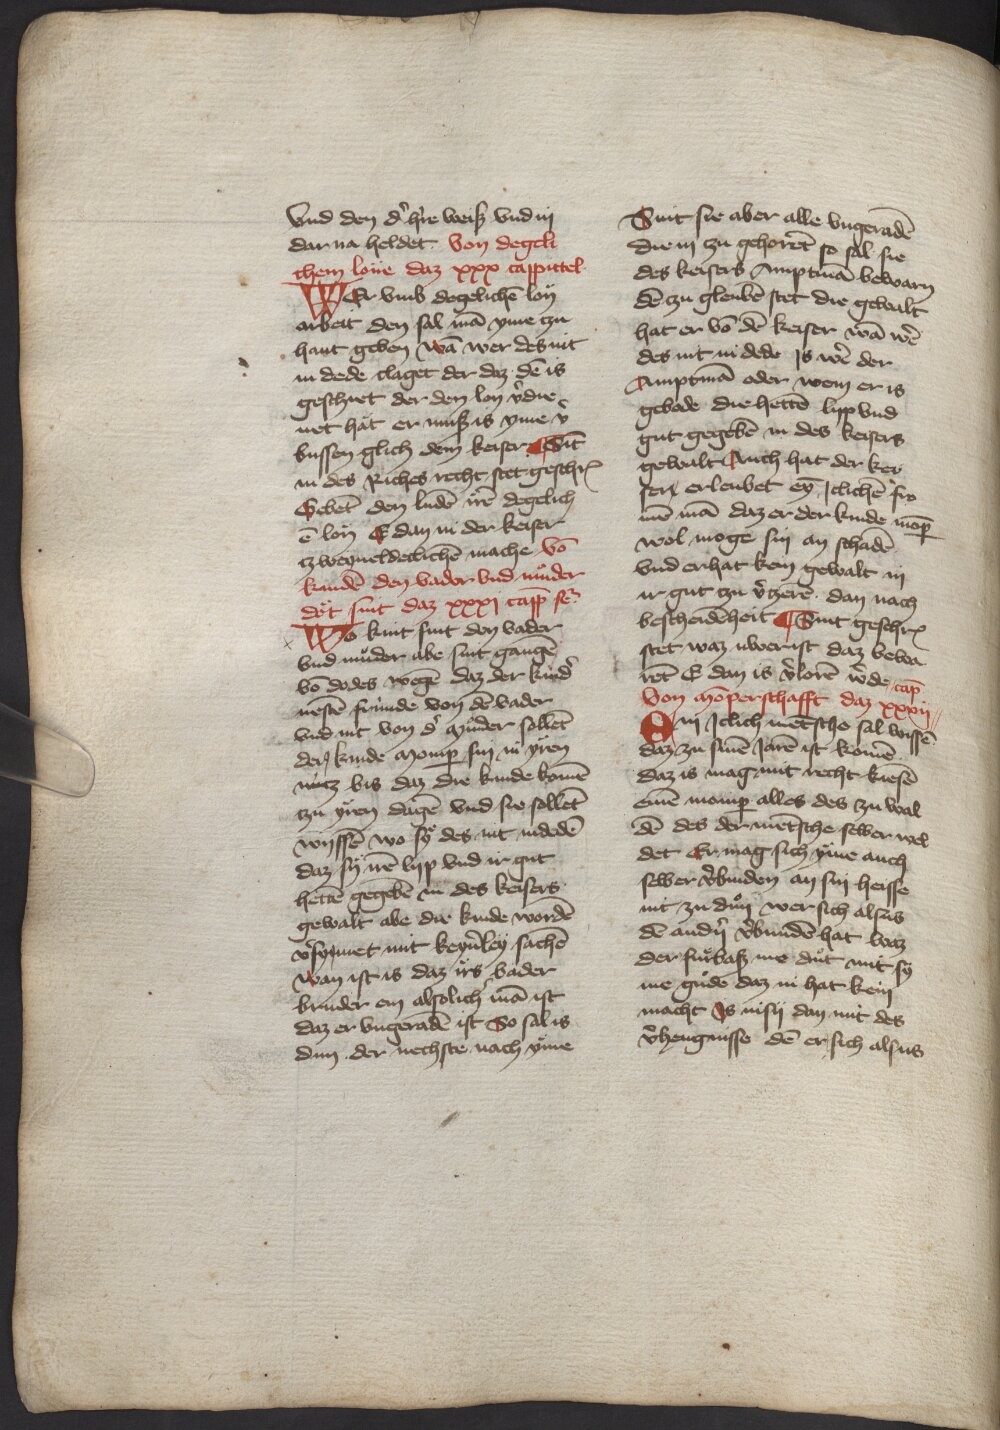 Vnd den d' h're weiß vnd in
dar na heldet. Von degeli
chem lone daz xxx cappittel.
WEr vmb degelichē lon
arbeit den sal mā yme czu
hant geben Wā wer des nit
in dede claget der daz dē is
geschiet der den lon v'die
net hat er muß is yme v'
bussen glich dem keiser Sīt
in des Riches recht stet geschr'
Gebēt den ludē irē degelich
ē lon E dan in der keiser
czweyueldeclichē mache Vō
kindē den vader vnd muder
dot sint daz xxxi capp
Wo kint sint den vader
vnd muder abe sint gangē
vō dodes wegē daz der kind'
nestē frunde von dē vader
vnd nit von d' muder sollēt
der kinde momp sin in yren
nutz bis daz die kinde komē
zu yren dagē vnd sie sollēt
wyssē wo sy des nit indedē
daz sy irē lijp vnd ir gut
hettē gegebē in des keisers
gewalt abe die kinde wordē
v'symet mit keyn'ley sachē
wan ist is daz irs vader
bruder ein alsolich mā ist
daz er vngeradē ist So sal is
dun der nechste nach yme
Sint sie aber alle vngeradē
die in zu gehorēt so sal sie
des keisers Amptmā bewarn
dē zu gleubē stet die gewalt
hat er vō dē keiser wā w'e
des nit in dede Is w'e der
Amptmā oder wem er is
gebode die hettē lijp vnd
gut gegebē in des keisers
gewalt Auch hat der kei
ser erleubet ey Iclichē fro
mē mā daz er der kinde mop
wol moge sin an schadē
vnd er hat kein gewalt in
ir gut czu v'tzerē dan nach
bescheidēheit Sint geschr'
stet waz uwer ist daz bewa
rēt E dan is v'lorē w'de cap
Von mōperschafft daz xxxij
Ein Iclich mētsche sal wissē
daz zu sinē Iarē ist komē
daz is mag mit recht kiesē
einē momp alles des zu wal
dē des der mētsche selber wel
det Er mag sich yme auch
selber v'binden an sin heisse
nit zu dun wer sich alsus
dē andn v'bundē hat waz
der furbaß me dut mit sy
me gude daz in hat kein
macht Is nisij dan mit des
v'hengnisse dē er sich alsus